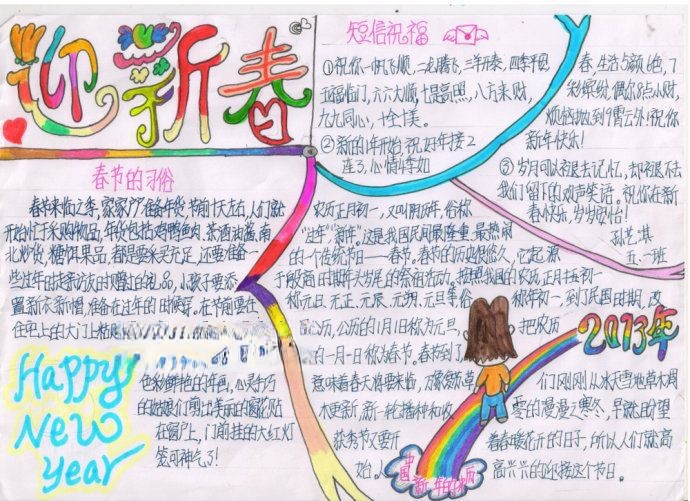 迎新春
短信祝福
①祝你一帆风顺，二龙腾飞，三羊开泰，四季平安
五福临门，六六大顺，七星高照，八方来财，
九九同心，十全十美。
②新的1年开始，祝好年接2
连3，心情4季如
春，生活5颜6色，7
彩缤纷，偶尔8点小财，
烦恼抛到9霄云外！祝你
新年快乐！
③岁月可以褪去记忆，却褪不去
我们留下的欢声笑语。祝你在新
春快乐，岁岁安怡！
五、一班
春节的习俗
春节来临之季，家家户户准备年货，节前十天左右，人们就
开始忙于采购物品，年货包括鸡鸭鱼肉、茶酒油酱、南
北炒货、糖饵果品，都是要采买充足，还要准备一
些过年时走亲访友时赠送的礼品，小孩子要添
置新衣新帽，准备在过年的时候穿。在节前要在
住宅上的大门上粘贴
色彩鲜艳的年画，心灵手巧
的姑娘们剪出美丽的窗花贴
在窗户上，门前挂的大红灯
笼可神气了！
农历正月初一，又叫阴历年，俗称
“过年”“新年”。这是我国民间最隆重、最热闹
的一个传统节日——春节。春节的历史很悠久，它起源
于殷商时期年头岁尾的祭祖活动。按照我国的农历，正月初一
称元日、元正、元辰、元朔、元旦等俗
称年初一，到了民国时期，改
公历，公历的1月1日称为元旦，
把农历
的一月一日称为春节。春节到了，
意味着春天将要来临，万象
木更新，新一轮播种和收
获季节又要开
始。
们刚刚从冰天雪地草木凋
零的漫漫寒冬，早就盼望
着春暖花开的日子，所以人们就高
高兴兴的迎接这个节日。
2013年
Happy
New
year